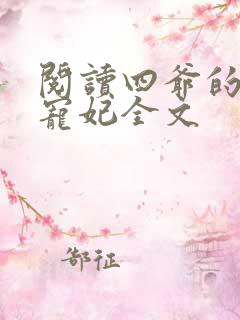 閱讀四爺的
寵妃全文
郜征